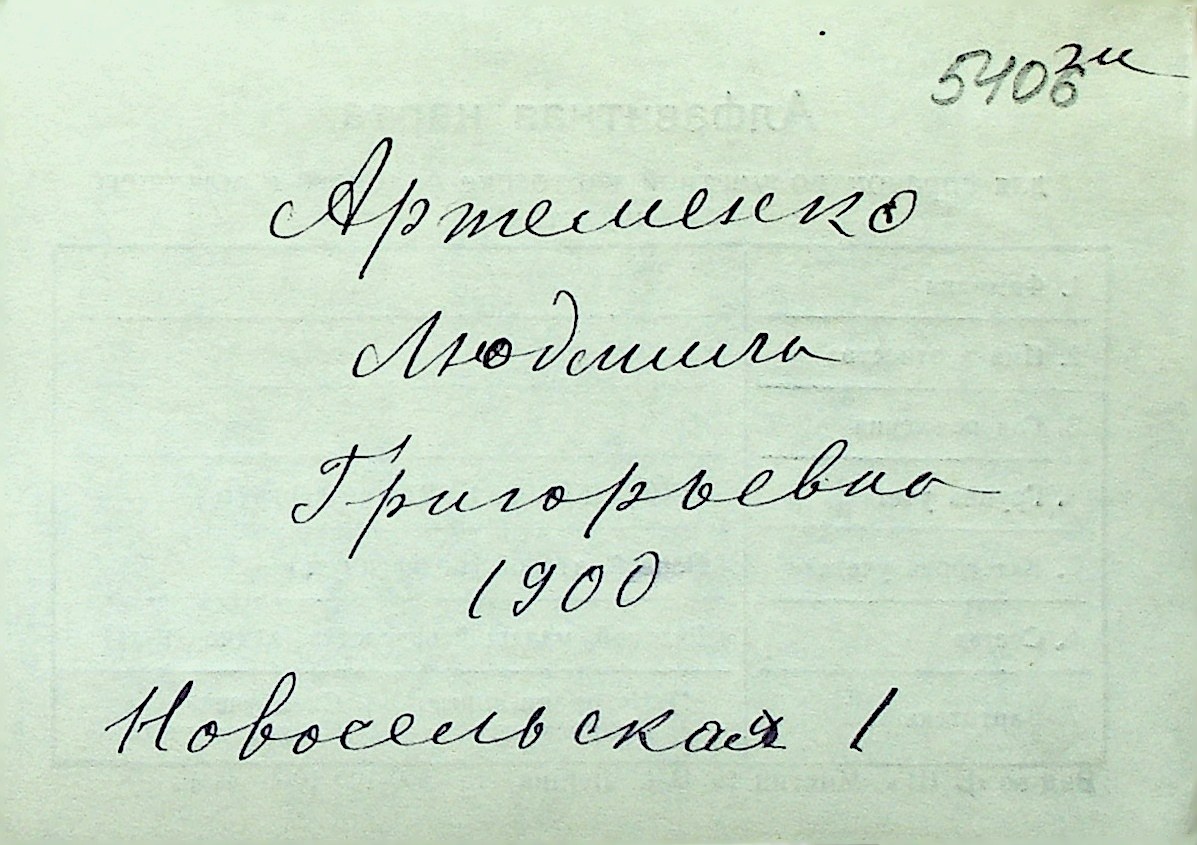 5406
Артеменко
Людмила
Григорьевна
1900
Новосельская 1